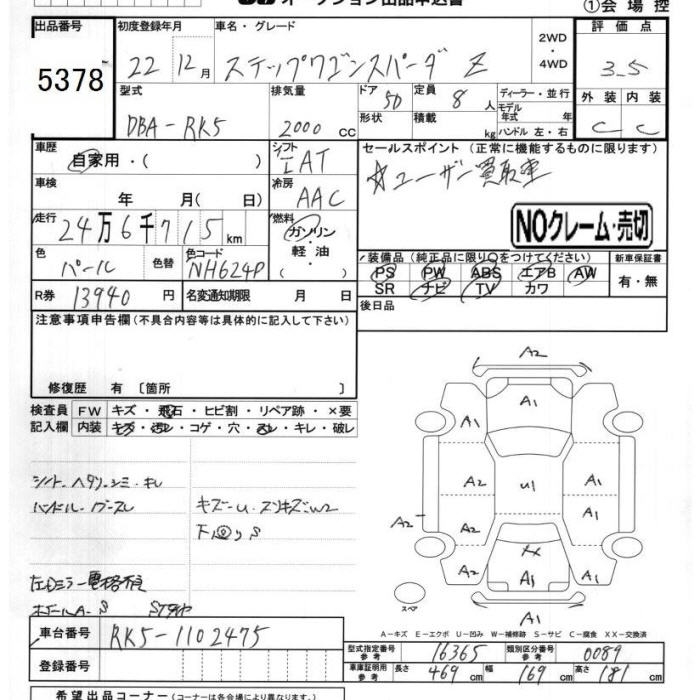 オークション出品申込書
①会場控
出品番号
5378
初度登録年月
22年12月
車名・グレード
ステップワゴンスパーダ Z
2WD・4WD
評価点
3.5
型式
DBA-RK5
排気量
2000 cc
ドア 5D
形状
定員 8人
積載 kg
ディーラー・並行
モデル年式 年式
ハンドル 左・右
外装 内装
C C
車歴
自家用・( )
シフト
IAT
セールスポイント (正常に機能するものに限ります)
☆ユーザー買取車
車検
年 月( 日)
冷房
AAC
走行
24万6千715km
燃料
ガソリン・軽油・( )
NOクレーム・売切
色
パール
色替
色コード
NH624P
装備品 (純正品に限り○をつけてください)
PS PW ABS エアB AW
SR ナビ TV カワ
新車保証書
有・無
R券 13940円
名変通知期限 月 日
後日品
注意事項申告欄 (不具合内容等は具体的に記入して下さい)
修復歴 有 〔箇所 〕
検査員記入欄
FW キズ・飛石・ヒビ割・リペア跡・×要
内装 キズ・汚レ・コゲ・穴・スレ・キレ・破レ
シート ヘタリ・シミ・キレ
ハンドル
キズ-U・スリキズ-W2
下回りS
左Dミラー電格不良
A2
A1
A1
A2
A1
U1
A2
A2
A1
X
A1
A1
A1
スペア
A-キズ E-エクボ U-凹み W-補修跡 S-サビ C-腐食 XX-交換済
車台番号
RK5-1102475
登録番号
型式指定番号 参考 16365
類別区分番号 参考 0089
車庫証明用 参考 長さ 469cm 幅 169cm 高さ 181cm
希望出品コーナー (コーナーは各会場により異なります)